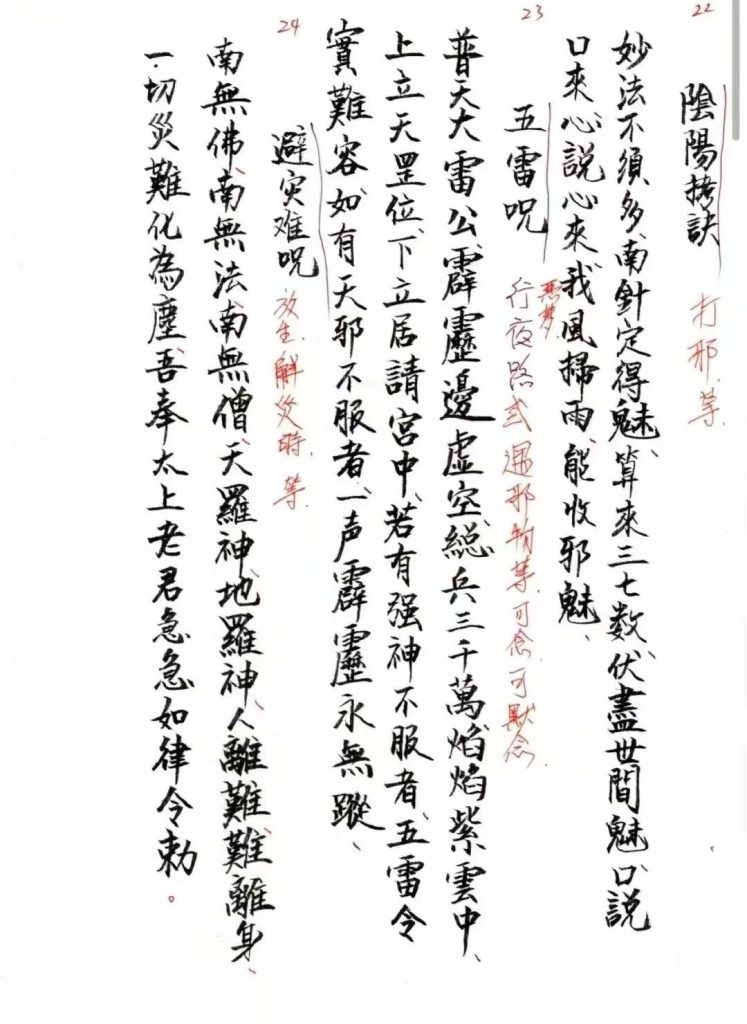 22
陰陽拷訣
打邪.等.
妙法不須多、南針定得魅、算來三七数、伏盡世間魅、口説
口來、心説心來、我風掃雨、能收邪魅、
23
五雷呪
惡梦.
行夜路或遇邪物等.可念.可默念.
普天大雷公、霹靂邊虛空、總兵三千萬、焰焰紫雲中、
上立天罡位、下立居請宮中、若有强神不服者、五雷令
實難容、如有天邪不服者、一声霹靂永無蹤、
24
避灾难呪
放生.解災時.等.
南無佛、南無法南無僧、天羅神、地羅神、人離難、難離身、
一切災難化為塵、吾奉太上老君急急如律令勅。